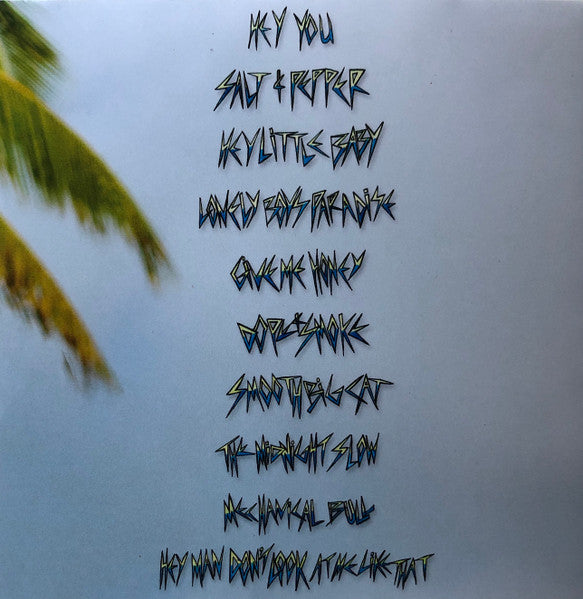 HEY YOU
SALT & PEPPER
HEY LITTLE BABY
LONELY BOYS PARADISE
GIVE ME HONEY
DOPE & SMOKE
SMOOTH BIG CAT
THE MIDNIGHT SLOW
MECHANICAL BULL
HEY MAN DON'T LOOK AT ME LIKE THAT